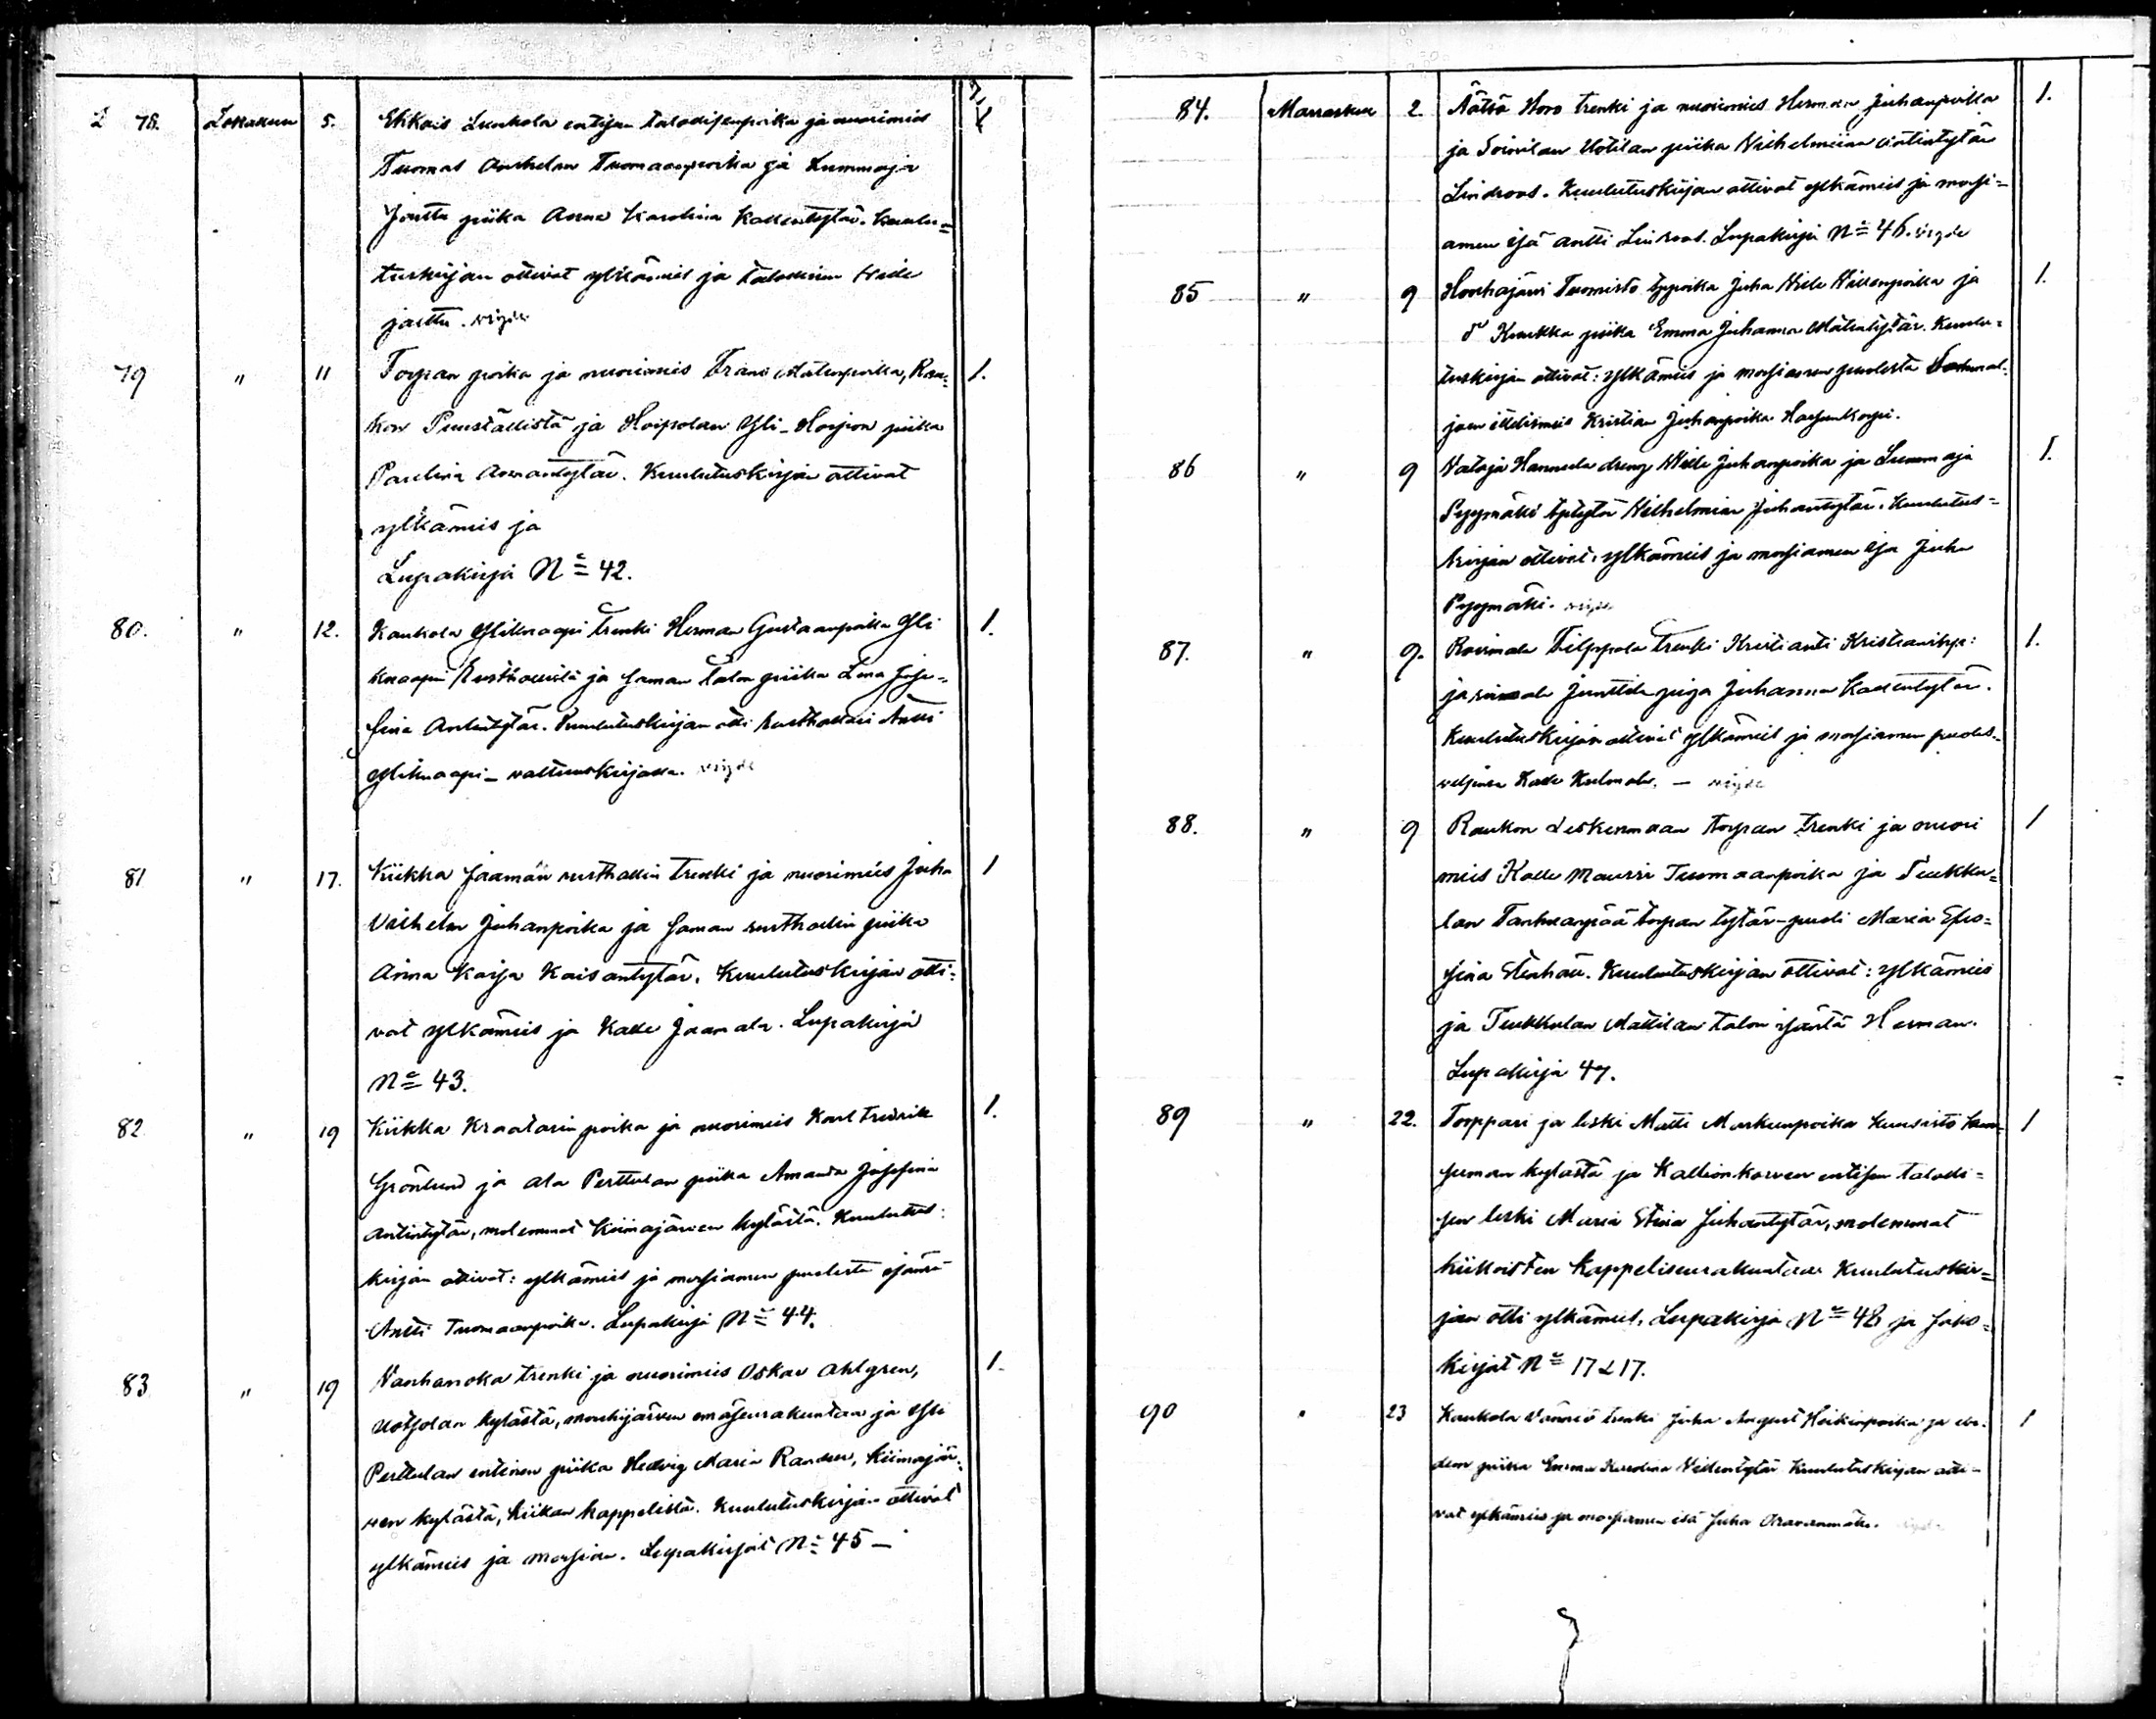 78. Lokakuu 5. Ehkois Lunkola entisen talodisenpoika ja nuorimies
Tuomas Anshelm Tuomaanpoika ja Lummaja
Joutta piika Anna Karolina Kallentytär. Kuulu=
tuskirjan ottivat ylkämies ja talollinen
vigde
79 " 11 Torpan poika ja nuorimies Frans Matinpoika, Rau=
kon Puustallista ja Hoipolan Yli-Horjon piika
Paulina Amantytär. Kuulutuskirjan ottivat
ylkämies ja
Lupakirja No 42.
80. " 12. Kaukola Yliknaapi trenki Herman Gustaanpoika Yli
knaapi Rusthollista ja saman talon piika Lina Jose=
fina Antintytär. Kuulutuskirjan otti rusthollari Antti
Yliknaapi - valtuuskirjalla. vigde
81 " 17. Kiikka Jaaman rusthollin trenki ja nuorimies Juha
Vilhelm Juhanpoika ja saman rusthollin piika
Anna Kaisa Kaisantytär. Kuulutuskirjan otti=
vat ylkämies ja Kalle Jaamala. Lupakirja
No 43.
82 " 19 Kiikka Kraatarin poika ja nuorimies Karl Fredrik
Grönlund ja ala Perttulan piika Amanda Josefina
Antintytär, molemmat Kiimajärven kylästä. Kuulutus=
kirjan ottivat: ylkämies ja morsiamen puolesta isänsä
Antti Tuomaanpoika. Lupakirja No 44.
83 " 19 Vanhanoka trenki ja nuorimies Oskar Ahlgren,
Uotsolan kylästä, mouhijärven emäseurakuntaa ja Yli
Perttulan entinen piika Hedvig Maria Randen, Kiimajär=
ven kylästä, Kiikan kappelista. Kuulutuskirjan ottivat
ylkämies ja morsian. Lupakirjat No 45 -
84. Marraskuu 2. Äätsä Horo trenki ja nuorimies Herman Juhanpoika
ja Soinilan Uotilan piika Vilhelmiina Antintytär
Lindroos. Kuulutuskirjan ottivat ylkämies ja morsi=
amen isä Antti Lindroos. Lupakirja No 46. vigde
85 " 9 Houhajärvi Tuomisto tppoika Juha Ville Villenpoika ja
Kuukka piika Emma Juhanna Matintytär. Kuulu=
tuskirjan ottivat: ylkämies ja morsiamen puolesta
itellismies Kristian Juhanpoika Harjunkorpi.
86 " 9 Vataja Hannula dreng Ville Juhanpoika ja Lummaja
Pyymäki tptytär Vilhelmiina Juhantytär. Kuulutus=
kirjan ottivat: ylkämies ja morsiamen isä Juha
Pyymäki. vigde
87. " 9. Roismala Filppola trenki Kristianti Kristianinp:
ja Juntila piga Juhanna Kallentytär.
Kuulutuskirjan ottivat ylkämies ja morsiamen puoles.
veljensä Kalle Kulmala. - vigde
88. " 9 Raukon Leskenmaan torpan trenki ja nuori
mies Kalle Mauri Tuomaanpoika ja Teukku=
lan Tanhuanpää torpan tytär-puoli Maria Efro=
sina Stenhäll. Kuulutuskirjan ottivat: ylkämies
ja Teukkulan Mattilan talon isäntä Herman.
Lupakirja 47.
89 " 22. Torppari ja leski Matti Markunpoika Kuusisto
kylästä ja Kallionkorven entisen talolli=
sen leski Maria Stina Juhantytär, molemmat
kiikoisten kappeliseurakuntaa Kuulutuskir=
jan otti ylkämies, Lupakirja No 48 ja Jako=
kirjat No 17 & 17.
90 " 23 Kaukola Vänniö trenki Juha August Heikinpoika ja
piika Emma Karolina Villentytär Kuulutuskirjan otti=
vat ylkämies ja morsiamen isä Juha